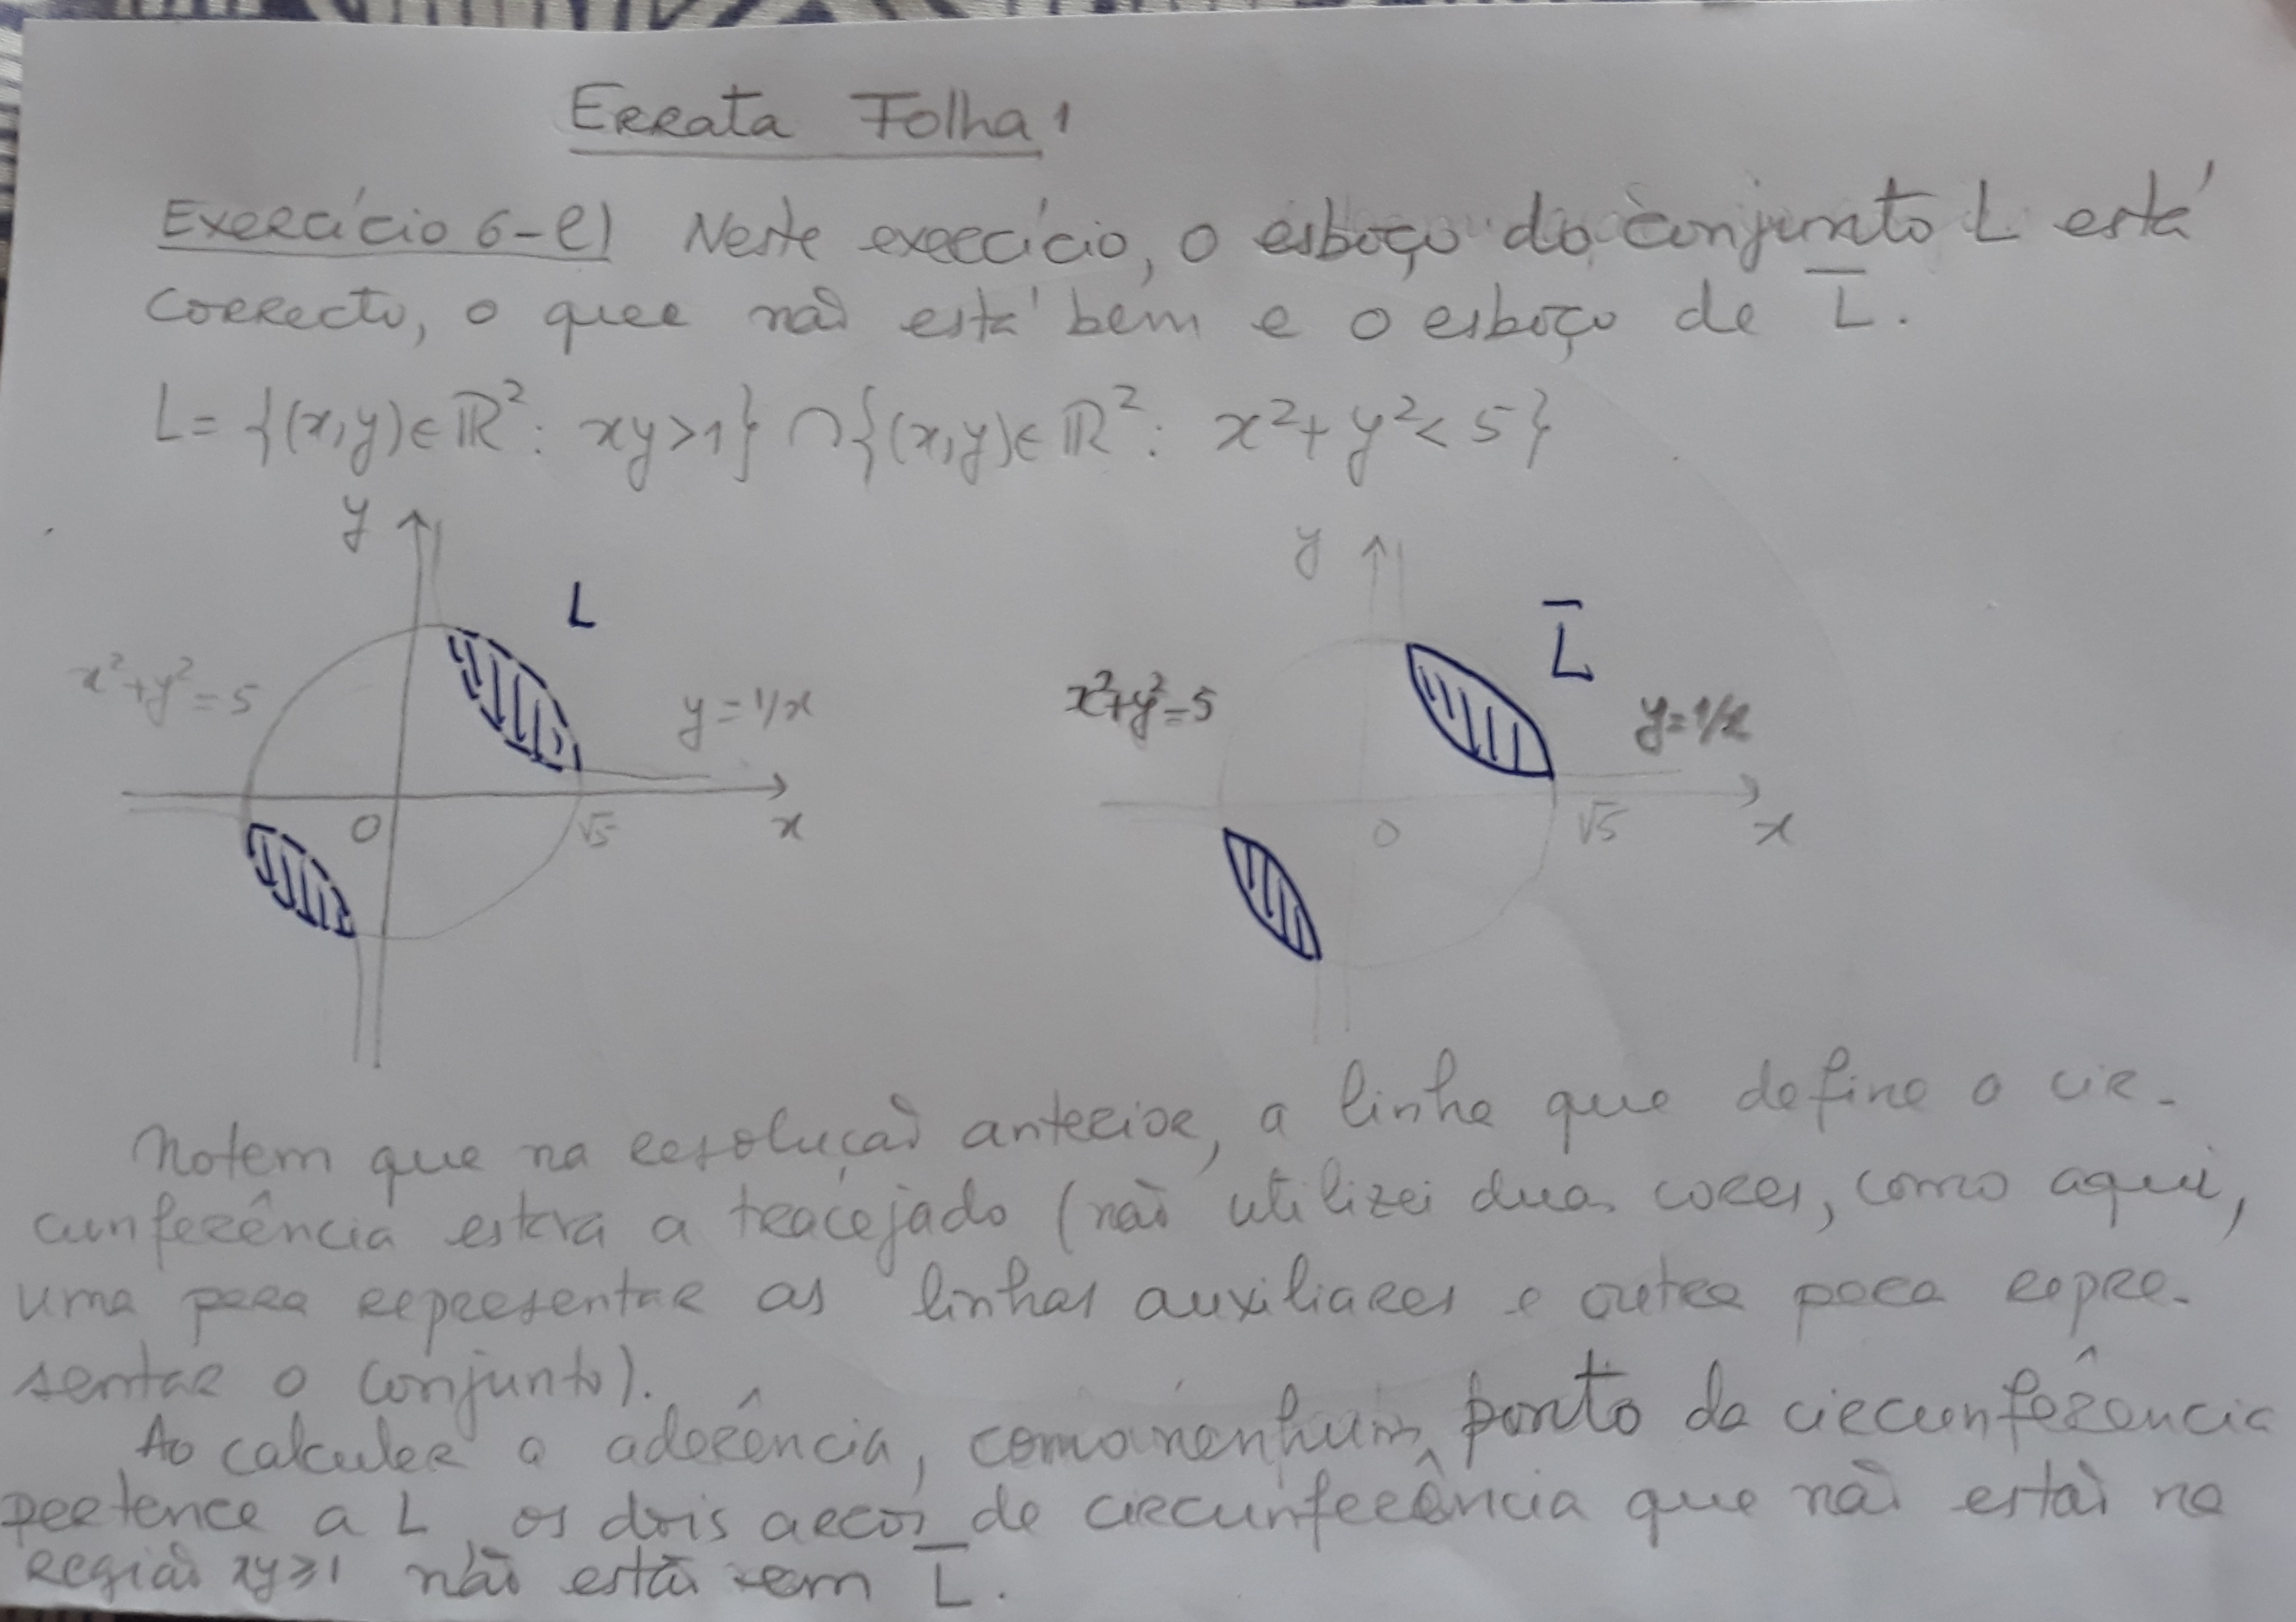 Errata Folha 1
Exercício 6-l) Neste exercício, o esboço do conjunto L está
correcto, o que não está bem é o esboço de L̅.
L = {(x,y)∈ℝ²: xy>1} ∩ {(x,y)∈ℝ²: x²+y²<5}
y
L
x²+y²=5
y=1/x
0
√5
x
y
L̅
x²+y²=5
y=1/x
0
√5
x
Notem que na resolução anterior, a linha que define a cir-
cunferência estava a tracejado (não utilizei duas cores, como aqui,
uma para representar as linhas auxiliares e outra para repre-
sentar o conjunto).
Ao calcular a aderência, como nenhum ponto da circunferência
pertence a L, os dois arcos de circunferência que não estão na
região xy≥1 não estão em L̅.